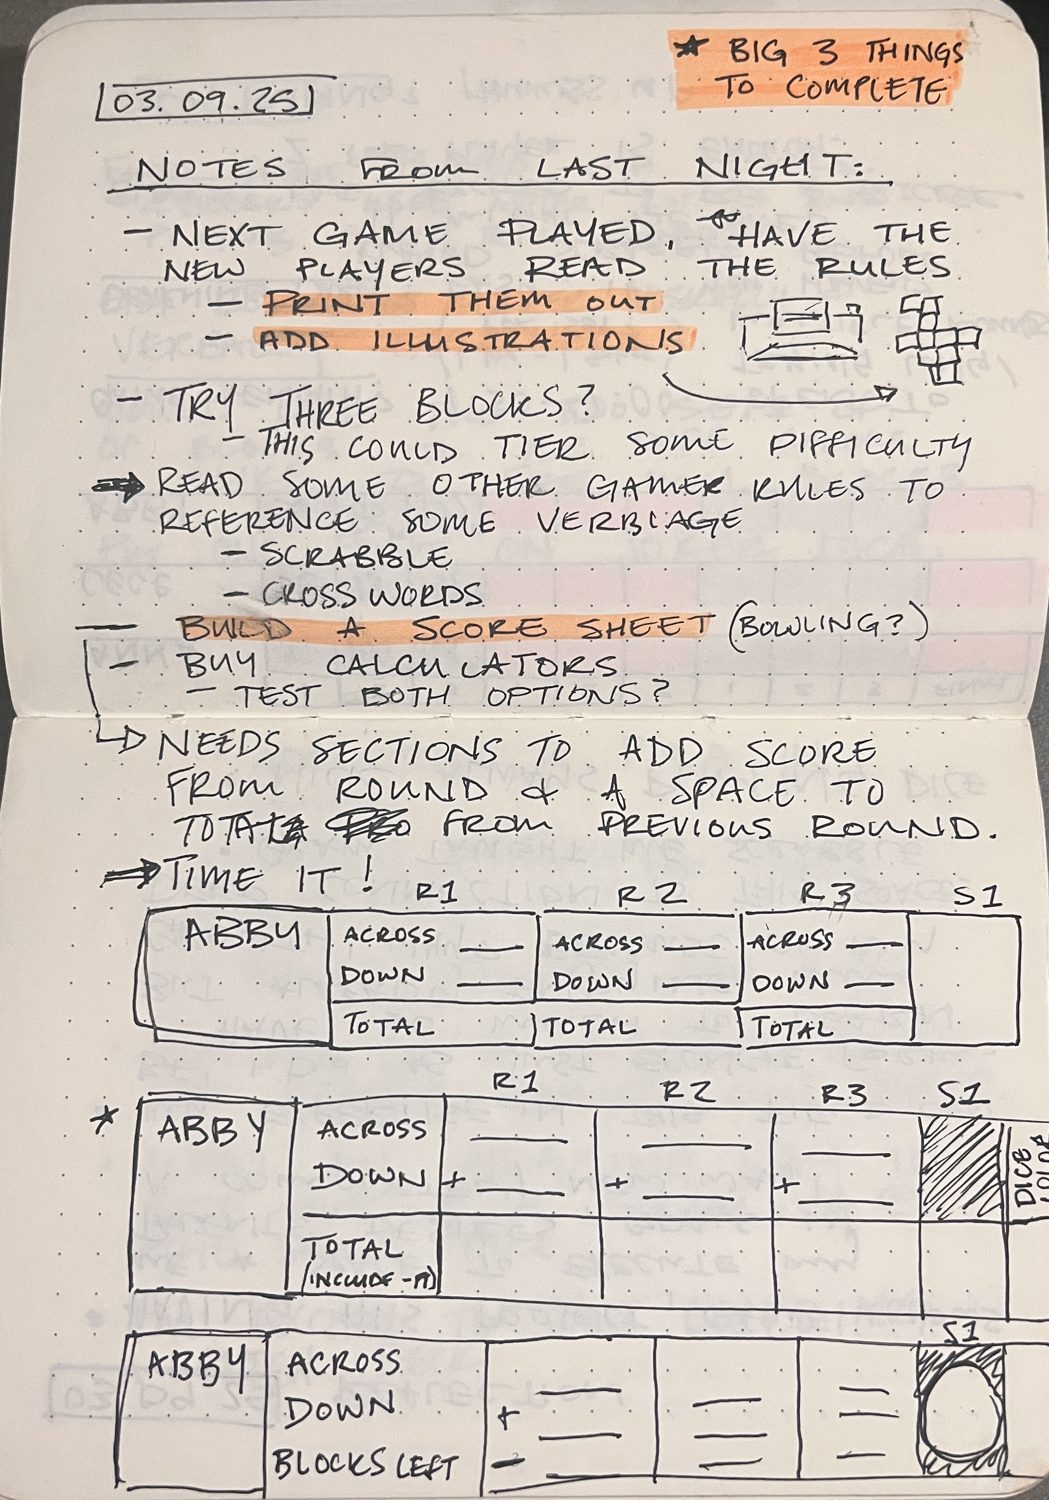 ★ BIG 3 THINGS
TO COMPLETE
03.09.25
NOTES FROM LAST NIGHT:
- NEXT GAME PLAYED, HAVE THE
NEW PLAYERS READ THE RULES
- PRINT THEM OUT
- ADD ILLUSTRATIONS
- TRY THREE BLOCKS?
- THIS COULD TIER SOME DIFFICULTY
→ READ SOME OTHER GAME RULES TO
REFERENCE SOME VERBIAGE
- SCRABBLE
- CROSS WORDS
- BUILD A SCORE SHEET (BOWLING?)
- BUY CALCULATORS
- TEST BOTH OPTIONS?
→ NEEDS SECTIONS TO ADD SCORE
FROM ROUND & A SPACE TO
TOTAL FROM PREVIOUS ROUND.
→ TIME IT!
R1 R2 R3 S1
ABBY ACROSS ACROSS ACROSS
DOWN DOWN DOWN
TOTAL TOTAL TOTAL
R1 R2 R3 S1
★ ABBY ACROSS
DOWN + + +
DICE
TOTAL
(INCLUDE
S1
ABBY ACROSS
DOWN +
BLOCKS LEFT -